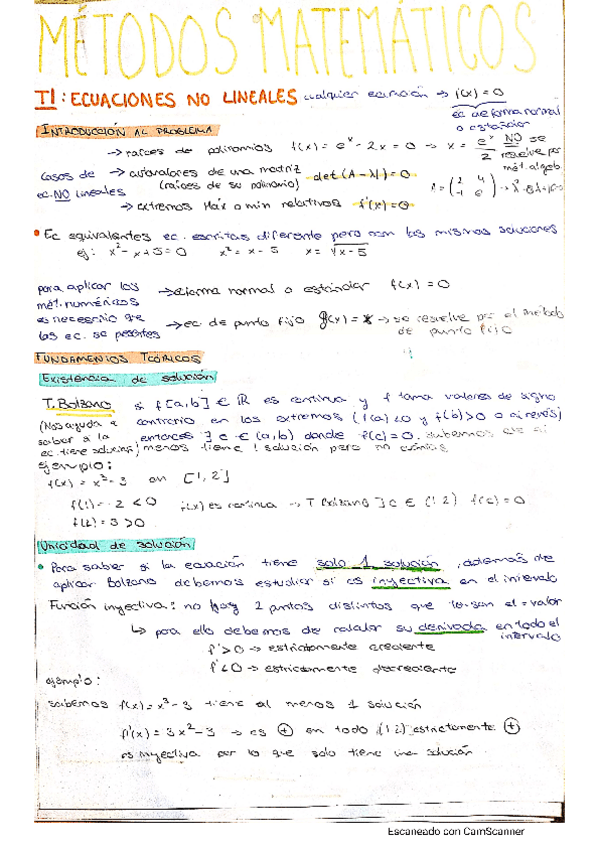 MÉTODOS MATEMÁTICOS
T1: ECUACIONES NO LINEALES cualquier ecuación → f(x) = 0
ec de forma normal
o estándar
INTRODUCCIÓN AL PROBLEMA
→ raíces de polinomios f(x) = eˣ - 2x = 0 → x = eˣ/2 NO se
resuelve por
mét. algeb
casos de → autovalores de una matriz det(A - λI) = 0
(raíces de su polinomio)
ec. NO lineales
→ extremos Máx o min relativos f'(x) = 0
• Ec equivalentes ec. escritas diferente pero con las mismas soluciones
ej: x² - x + 5 = 0 x² = x - 5 x = √x-5
para aplicar los → forma normal o estándar f(x) = 0
mét. numéricos
es necesario que → ec de punto fijo g(x) = x → se resuelve por el método
las ec. se presenten de punto fijo
FUNDAMENTOS TEÓRICOS
Existencia de solución
T. Bolzano si f [a,b] ∈ ℝ es continua y f toma valores de signo
(Nos ayuda a contrario en los extremos (f(a)<0 y f(b)>0 o al revés)
saber si la entonces ∃ c ∈ (a,b) donde f(c) = 0.
ec. tiene solución) menos tiene 1 solución pero no cuántas
ejemplo:
f(x) = x³ - 3 en [1,2]
f(1) = -2 < 0 f(x) es continua → T Bolzano ∃ c ∈ (1,2) f(c) = 0
f(2) = 3 > 0
Unicidad de solución
• Para saber si la ecuación tiene solo 1 solución, además de
aplicar Bolzano debemos estudiar si es inyectiva en el intervalo
Función inyectiva: no hay 2 puntos distintos que tengan el = valor
↳ para ello debemos de calcular su derivada en todo el
intervalo
f' > 0 → estrictamente creciente
f' < 0 → estrictamente decreciente
ejemplo:
sabemos f(x) = x³ - 3 tiene al menos 1 solución
f'(x) = 3x² - 3 → es ⊕ en todo (1,2) estrictamente ⊕
es inyectiva por lo que solo tiene una solución.
Escaneado con CamScanner